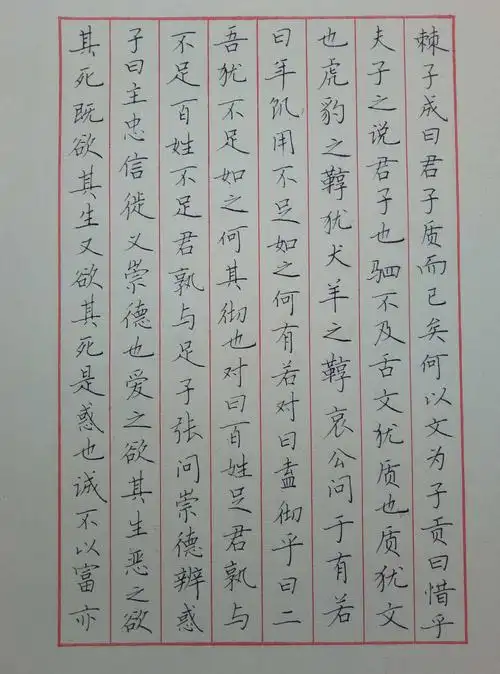 棘子成曰君子质而已矣何以文为子贡曰惜乎
夫子之说君子也驷不及舌文犹质也质犹文
也虎豹之鞟犹犬羊之鞟哀公问于有若
曰年饥用不足如之何有若对曰盍彻乎曰二
吾犹不足如之何其彻也对曰百姓足君孰与
不足百姓不足君孰与足子张问崇德辨惑
子曰主忠信徙义崇德也爱之欲其生恶之欲
其死既欲其生又欲其死是惑也诚不以富亦